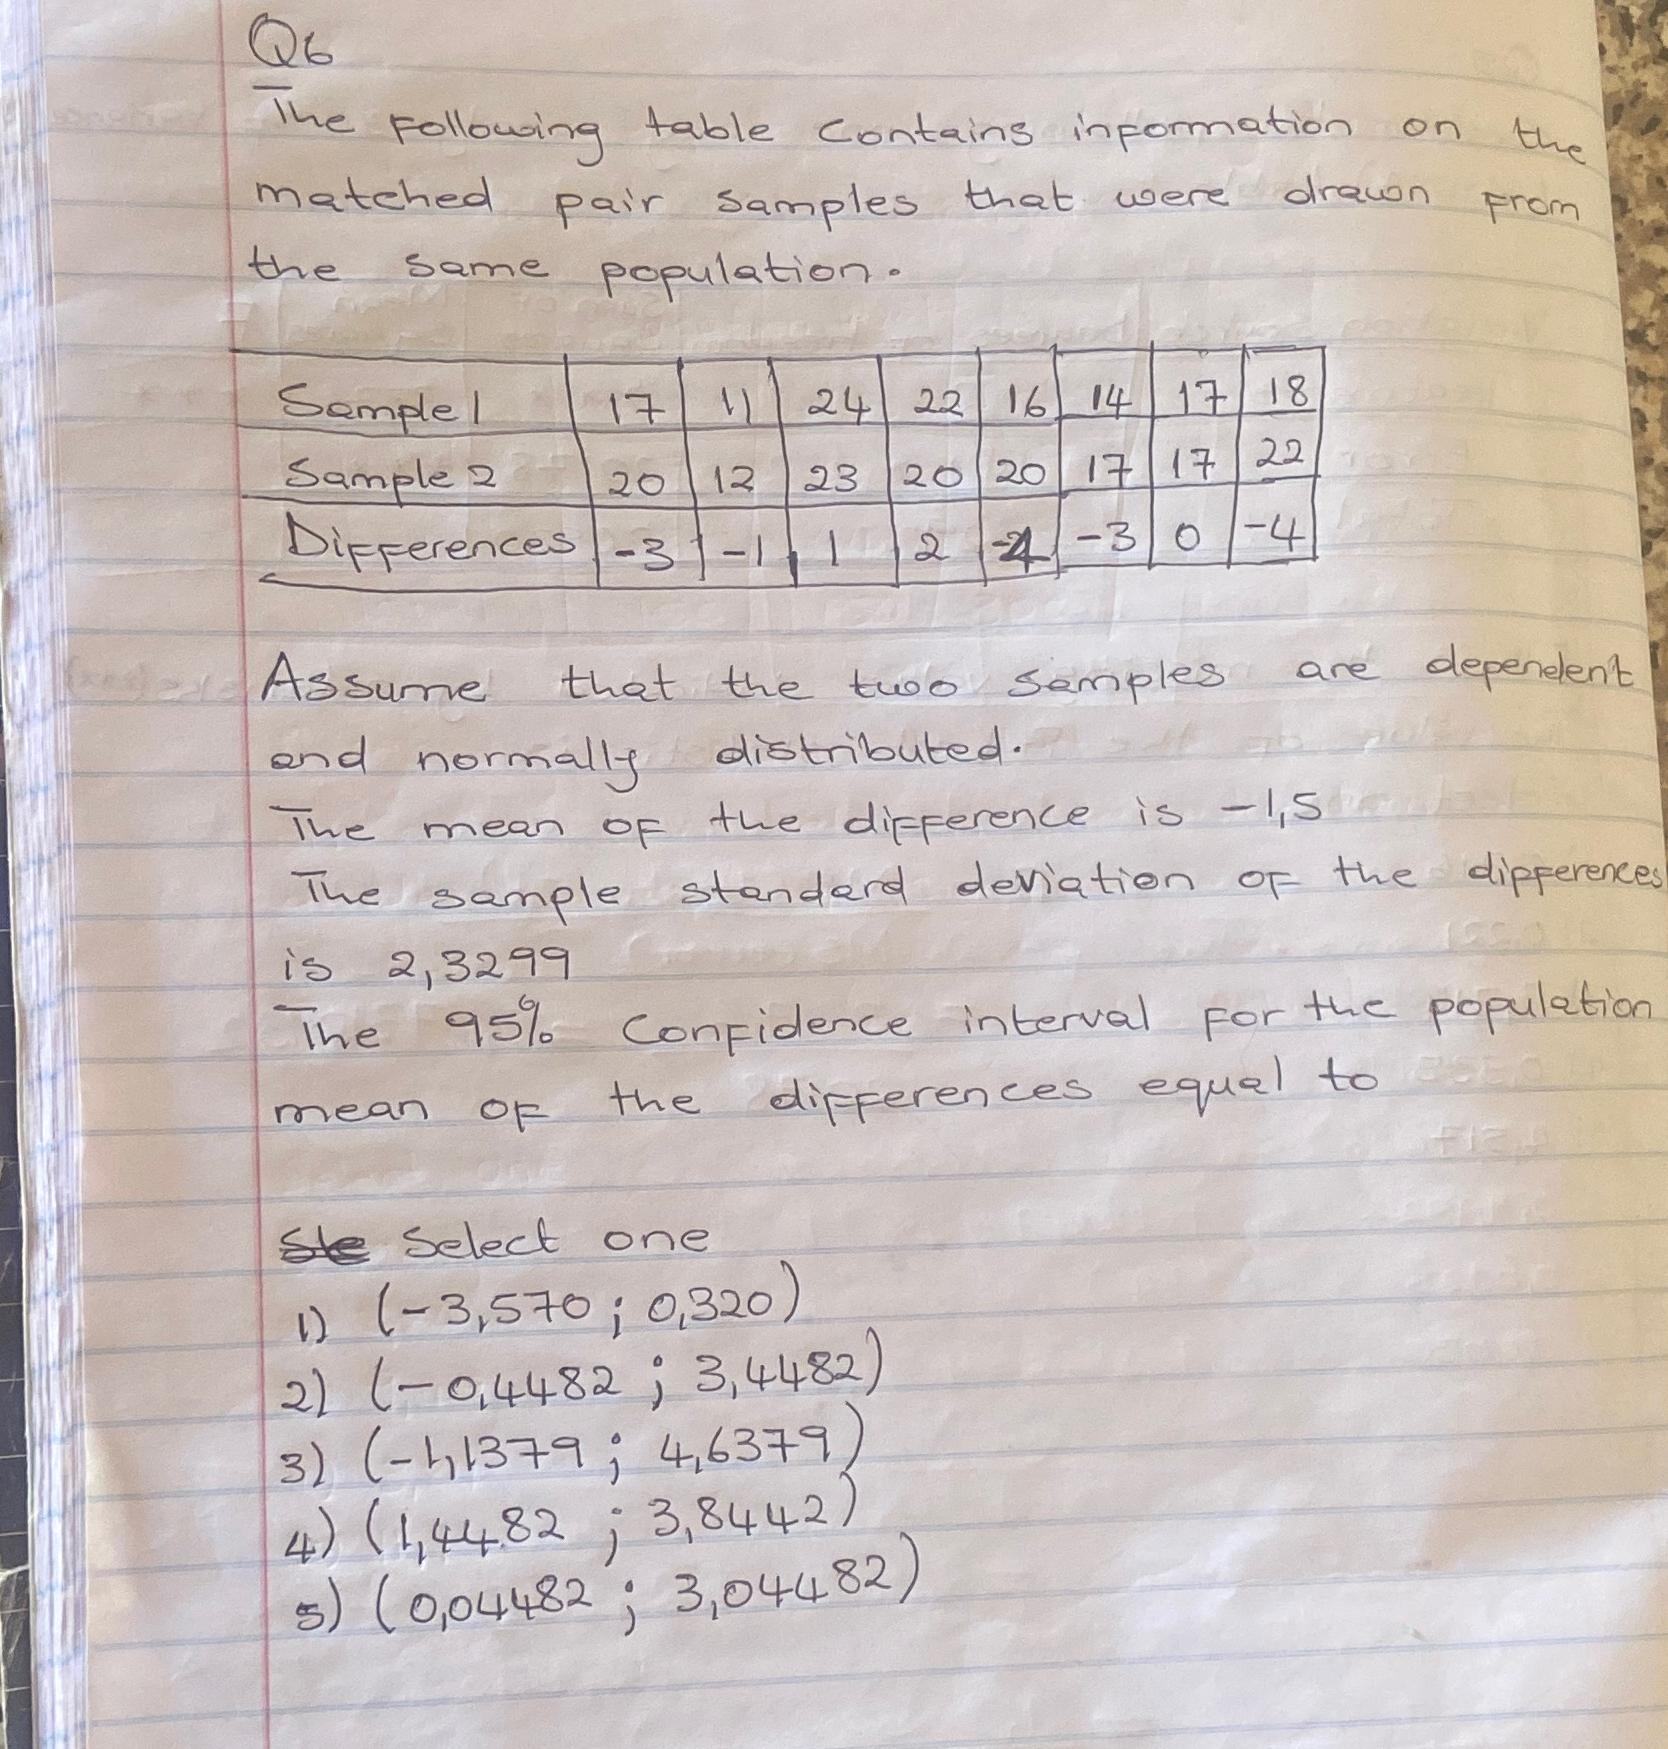 Q6
The following table contains information on the
matched pair samples that were drawn from
the same population.
Sample 1 17 11 24 22 16 14 17 18
Sample 2 20 12 23 20 20 17 17 22
Differences -3 -1 1 2 -4 -3 0 -4
Assume that the two samples are dependent
and normally distributed.
The mean of the difference is -1,5
The sample standard deviation of the differences
is 2,3299
The 95% Confidence interval for the population
mean of the differences equal to
Select one
1) (-3,570 ; 0,320)
2) (-0,4482 ; 3,4482)
3) (-1,1379 ; 4,6379)
4) (1,4482 ; 3,8442)
5) (0,04482 ; 3,04482)